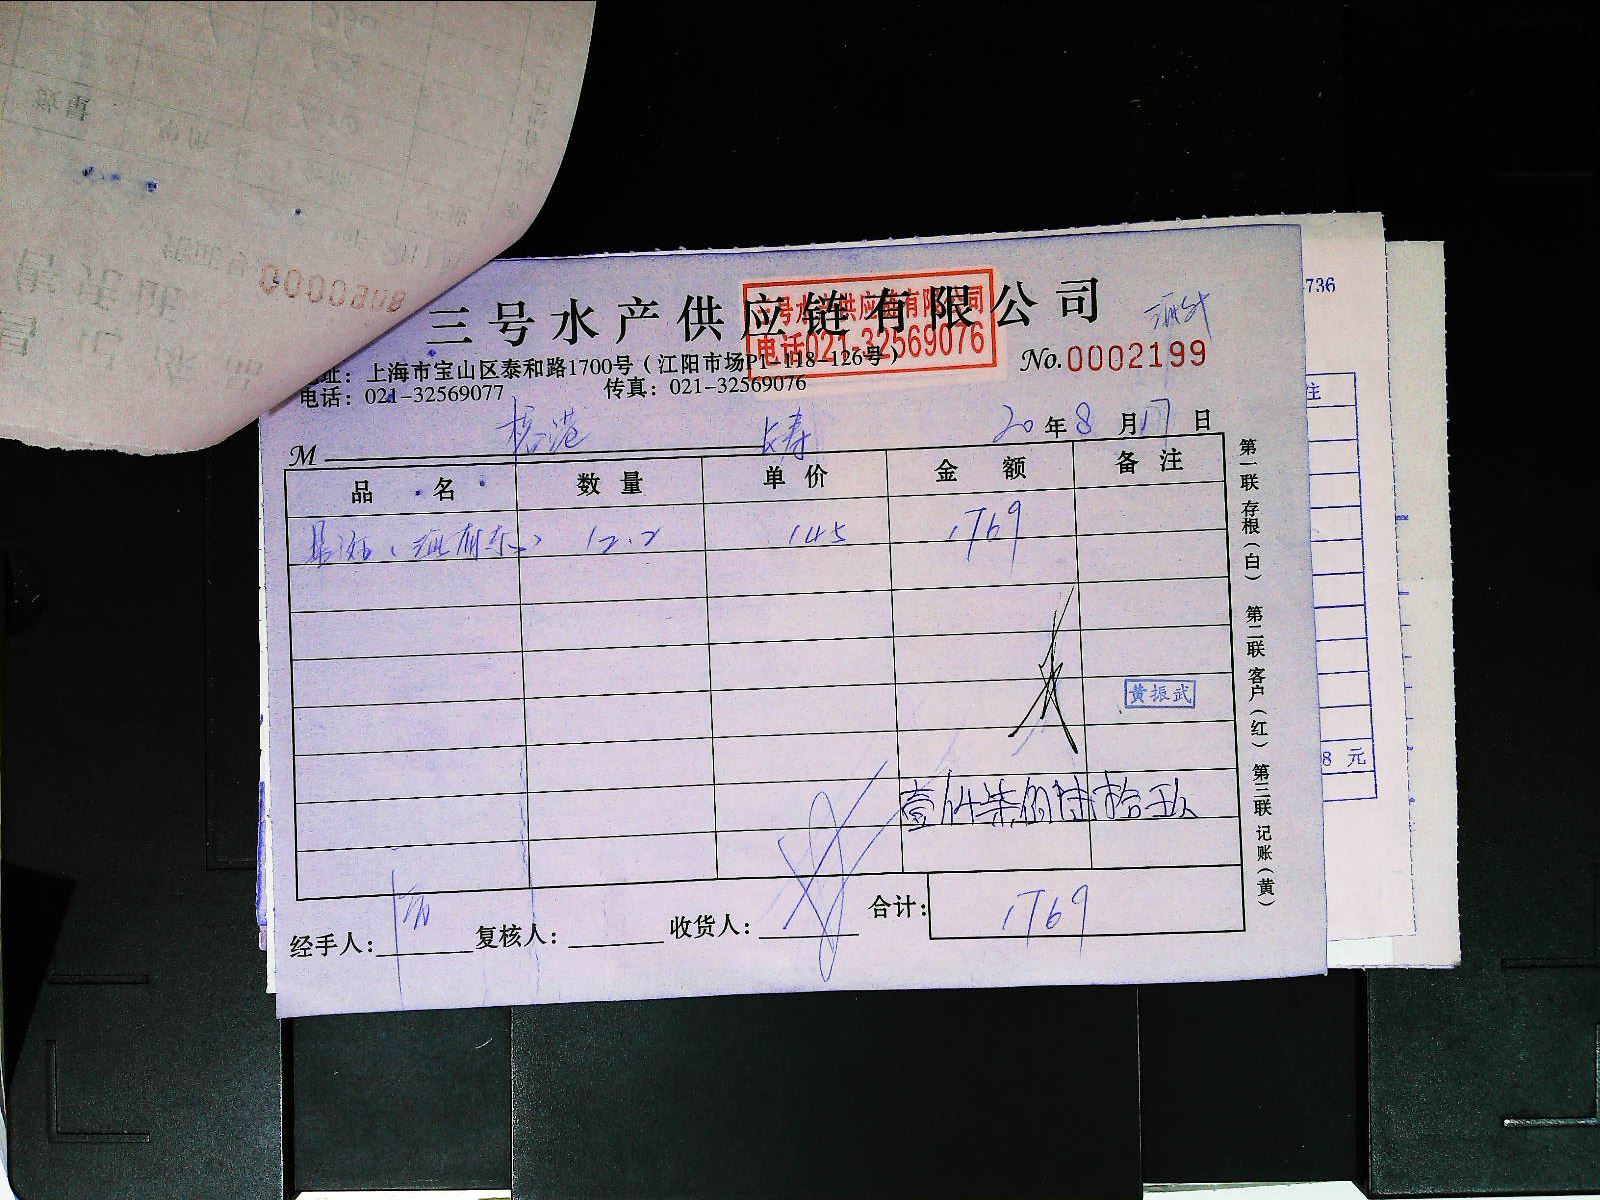 三号水产供应链有限公司
三号水产供应链有限公司
电话021-32569076
地址：上海市宝山区泰和路1700号（江阳市场P1-118-126号）
No.0002199
电话：021-32569077 传真：021-32569076
20年8月17日
M
品名 数量 单价 金额 备注
12.2 145 1769
黄振武
壹仟柒佰陆拾玖
经手人： 复核人： 收货人： 合计：1769
第一联存根（白） 第二联客户（红） 第三联记账（黄）
736
注
8元